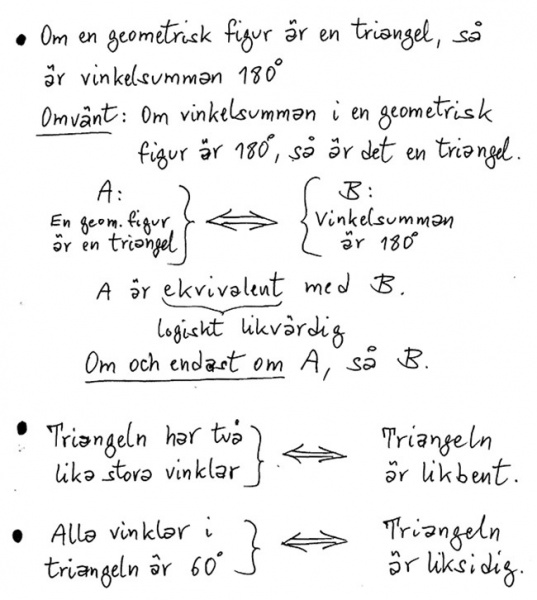 • Om en geometrisk figur är en triangel, så
är vinkelsumman 180°
Omvänt: Om vinkelsumman i en geometrisk
figur är 180°, så är det en triangel.
A:
En geom. figur
är en triangel
⟺
B:
Vinkelsumman
är 180°
A är ekvivalent med B.
logiskt likvärdig
Om och endast om A, så B.
• Triangeln har två
lika stora vinklar
⟺
Triangeln
är likbent.
• Alla vinklar i
triangeln är 60°
⟺
Triangeln
är liksidig.